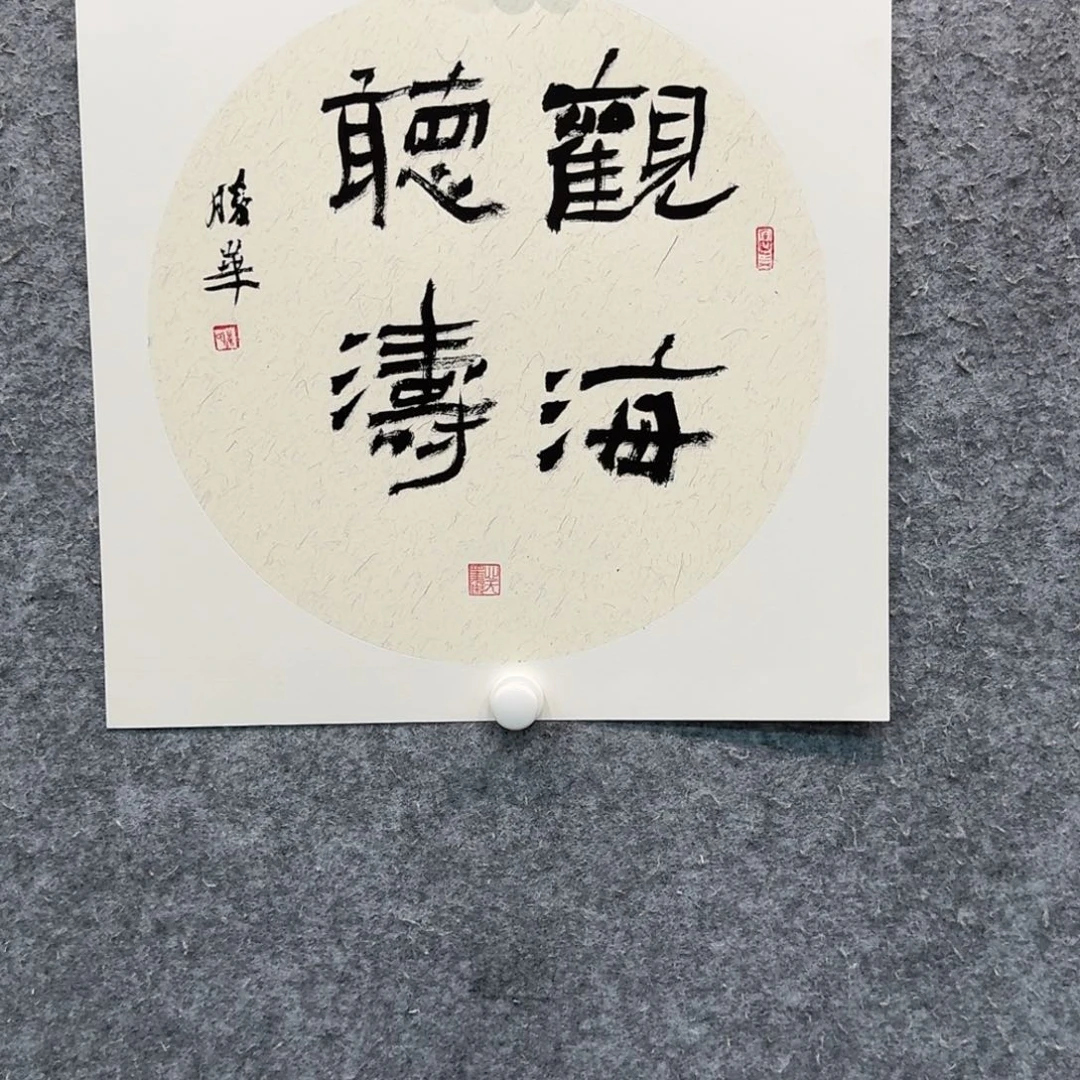 觀海
聽濤
勝華